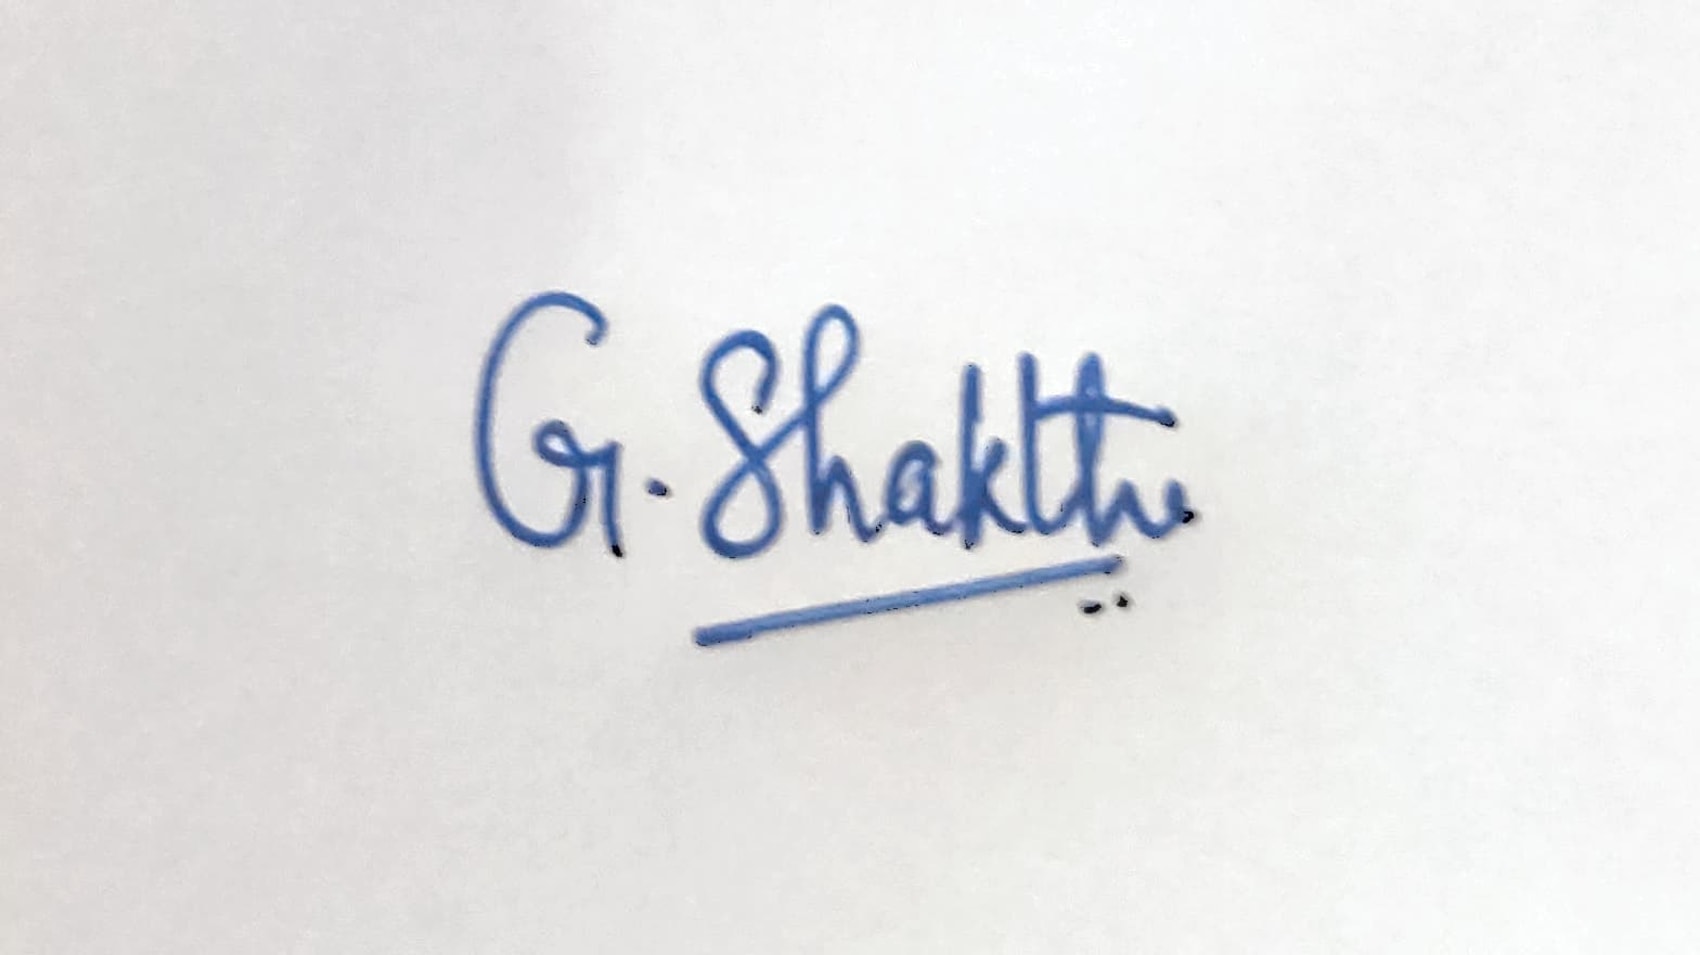 G. Shakthi